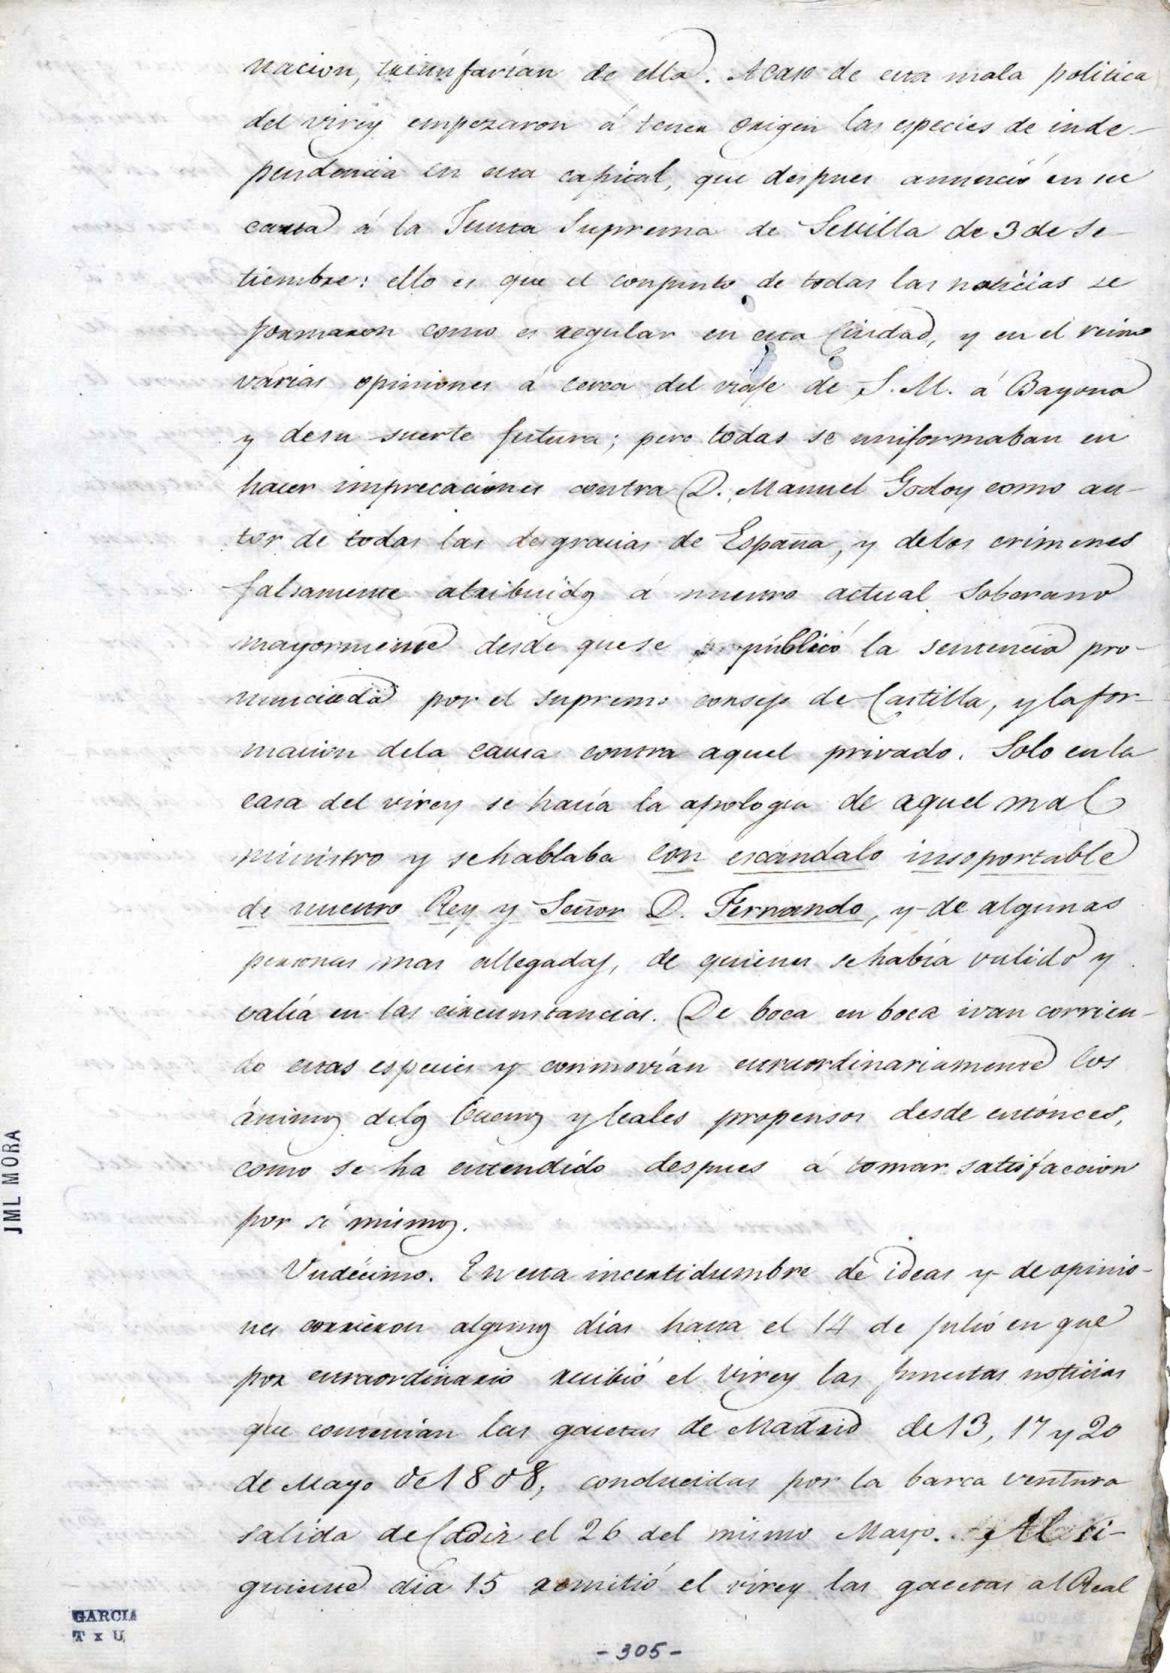 nacion, triunfarían de ella. Acaso de esta mala politica
del virey empezaron á tener origen las especies de inde-
pendencia en esta capital, que despues anunció en su
carta á la Junta Suprema de Sevilla de 3 de Se-
tiembre: ello es que el conjunto de todas las noticias se
formaron como es regular en esta Ciudad, y en el reino
várias opiniones á cerca del viaje de S. M. á Bayona
y desu suerte futura; pero todas se uniformaban en
hacer imprecaciones contra D. Manuel Godoy como au-
tor de todas las desgracias de España, y delos crimenes
falsamente atribuidos á nuestro actual Soberano
mayormente desde quese publicó la sentencia pro-
nunciada por el supremo consejo de Castilla, y la for-
macion dela causa contra aquel privado. Solo en la
casa del virey se hacía la apologia de aquel mal
ministro y sehablaba con escándalo insoportable
de nuestro Rey y Señor D. Fernando, y de algunas
personas mas allegadas, de quienes sehabía valido y
valía en las circunstancias. De boca en boca ivan corrien-
do estas especies y conmovían extraordinariamente los
ánimos delos buenos y leales propensos desde entónces,
como se ha entendido despues á tomar satisfaccion
por sí mismos.
Undécimo. En esta incertidumbre de ideas y de opinio-
nes corrieron algunos dias hasta el 14 de julio en que
por extraordinario recibió el virey las funestas noticias
que contenían las gacetas de Madrid de 13, 17 y 20
de Mayo de 1808, conducidas por la barca ventura
salida de Cadiz el 26 del mismo Mayo. Al si-
guiente dia 15 remitió el virey las gacetas al Real
JML MORA
GARCIA
T x U
- 305 -